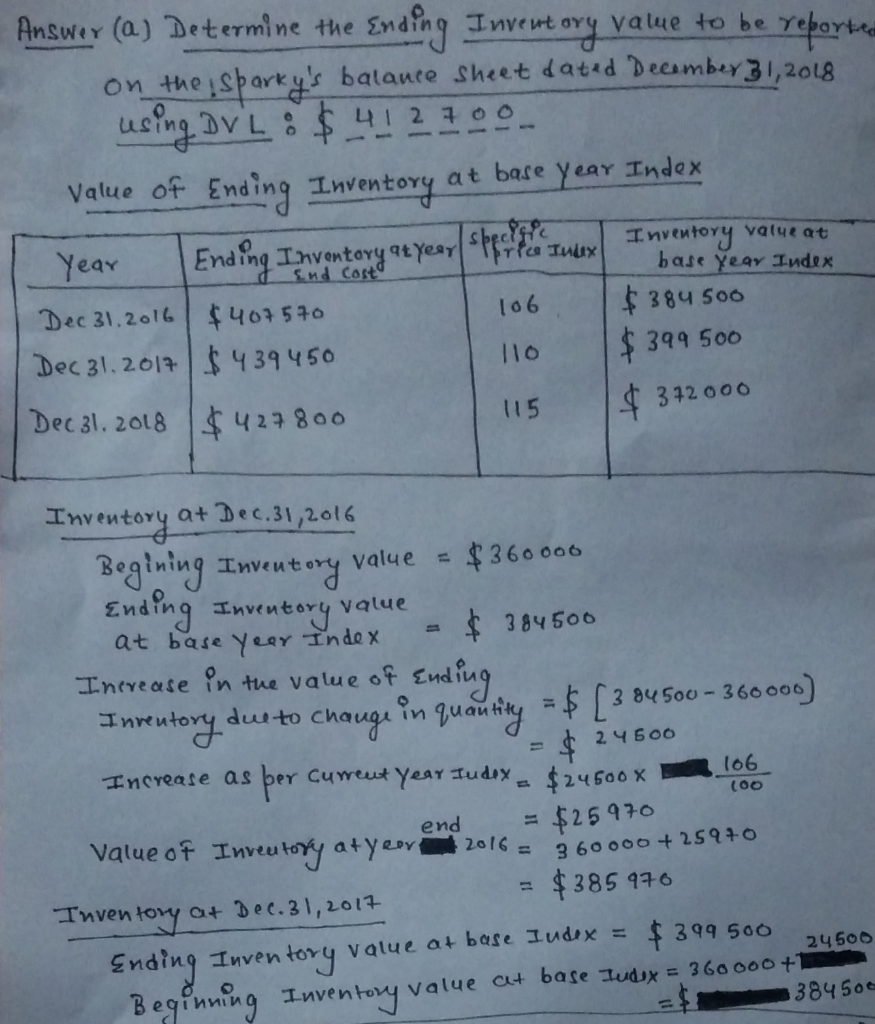 Answer (a) Determine the Ending Inventory value to be reported
on the Sparky's balance sheet dated December 31, 2018
using DVL : $ 412700
Value of Ending Inventory at base year Index
Year | Ending Inventory at year End Cost | Specific Price Index | Inventory value at base year Index
Dec 31. 2016 | $407570 | 106 | $384500
Dec 31. 2017 | $439450 | 110 | $399500
Dec 31. 2018 | $427800 | 115 | $372000
Inventory at Dec. 31, 2016
Begining Inventory value = $360000
Ending Inventory value
at base year Index = $ 384500
Increase in the value of Ending
Inventory due to change in quantity = $ [384500 - 360000)
= $ 24500
Increase as per current year Index = $24500 x 106/100
= $25970
Value of Inventory at year end 2016 = 360000 + 25970
= $385970
Inventory at Dec. 31, 2017
Ending Inventory value at base Index = $ 399500
Beginning Inventory value at base Index = 360000 + 24500
= $ 384500